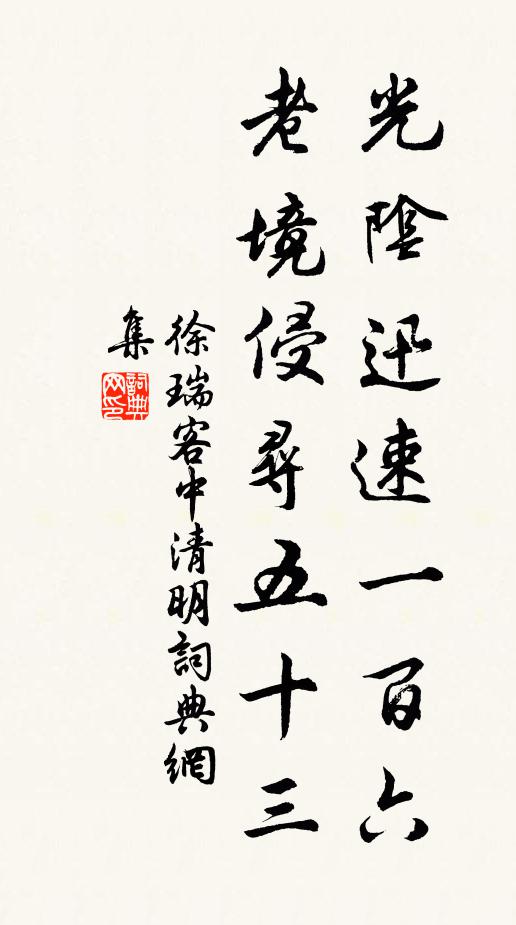 光陰迅速一百六
老境侵尋五十三
徐瑞客中清明詞典網
集
詞典
网印